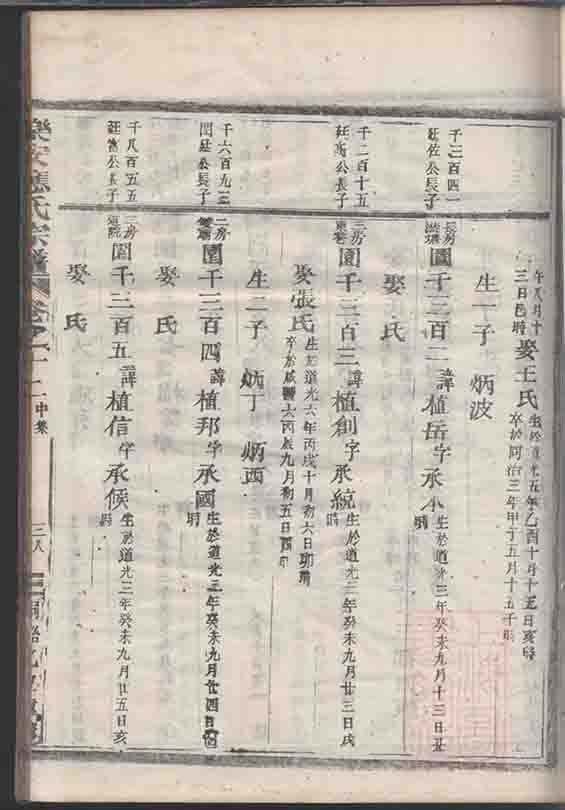 午八月十
三日邑時
娶王氏
生於道光五年乙酉十月十五日亥時
卒於同治三年甲子五月十五子時
生一子 炳波
千三百四一
廷佐公長子
長房
圖千三百二諱植岳字承
生於道光三年癸未九月十三日丑
時
娶 氏
千二百十五
廷衡公長子
三房
園千三百三諱植創字承統
生於道光三年癸未九月廿三日戌
時
娶張氏
生於道光六年丙戌十月初六日卯時
卒於咸豐六丙辰九月初五日酉時
生二子 炳丁 炳酉
千六百九
公長子
二房
千三百四諱植邦字承國
生於道光三年癸未九月廿四日酉
時
娶 氏
千八百五五
廷公長子
三房
千三百五諱植信字承候
生於道光三年癸未九月廿五日亥
時
娶 氏
樂安 氏宗譜 卷之十二 中集
三八